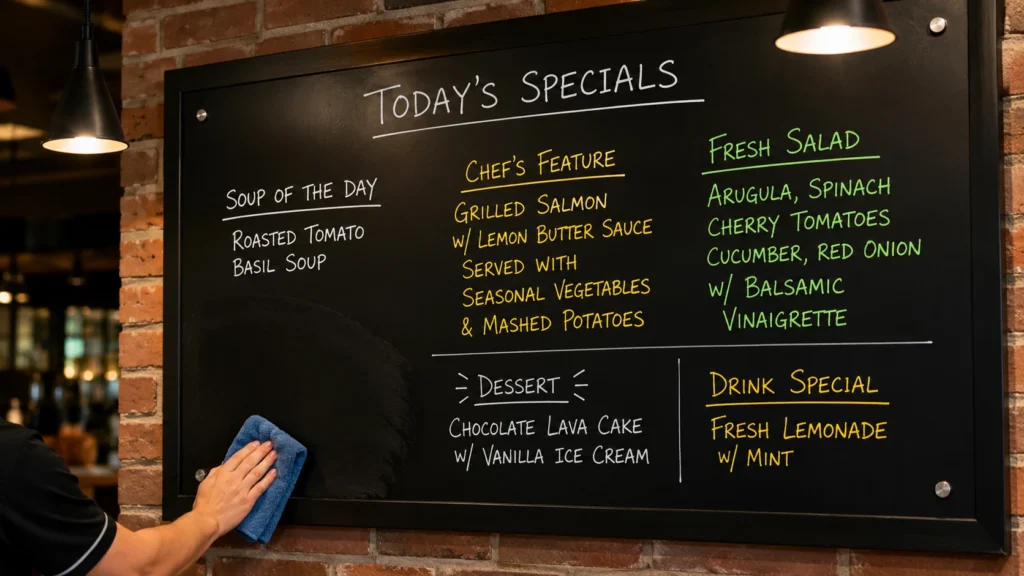 TODAY'S SPECIALS
SOUP OF THE DAY
ROASTED TOMATO
BASIL SOUP
CHEF'S FEATURE
GRILLED SALMON
W/ LEMON BUTTER SAUCE
SERVED WITH
SEASONAL VEGETABLES
& MASHED POTATOES
FRESH SALAD
ARUGULA, SPINACH
CHERRY TOMATOES
CUCUMBER, RED ONION
W/ BALSAMIC
VINAIGRETTE
DESSERT
CHOCOLATE LAVA CAKE
W/ VANILLA ICE CREAM
DRINK SPECIAL
FRESH LEMONADE
W/ MINT